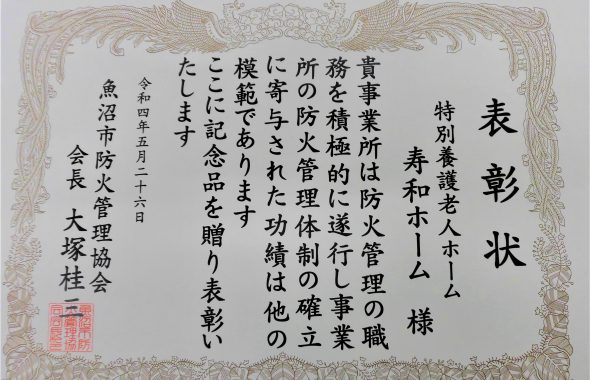 表彰状
特別養護老人ホーム
寿和ホーム 様
貴事業所は防火管理の職
務を積極的に遂行し事業
所の防火管理体制の確立
に寄与された功績は他の
模範であります
ここに記念品を贈り表彰い
たします
令和四年五月二十六日
魚沼市防火管理協会
会長 大塚桂三